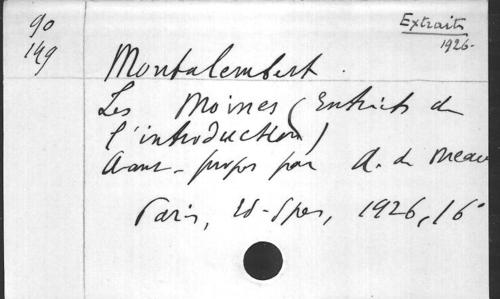 90
149
Extraits
1926.
Montalembert.
Les Moines (Extraits de
l'introduction)
Avant-propos par A. de Meaux
Paris, 1926, 16°